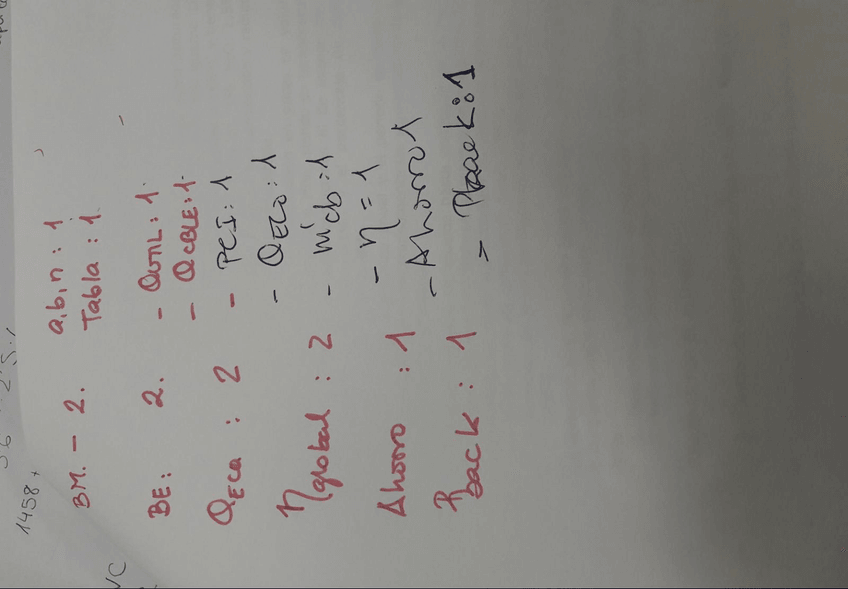 1458+
BM. - 2. a,b,n : 1
Tabla : 1
BE: 2. - QUTIL : 1.
- QCBLE : 1.
QECO : 2 - PCI : 1
- QECO : 1
ηglobal : 2 - ṁcb : 1
- η = 1
Ahorro : 1 - Ahorro 1
Pback : 1 = Pback : 1
VC